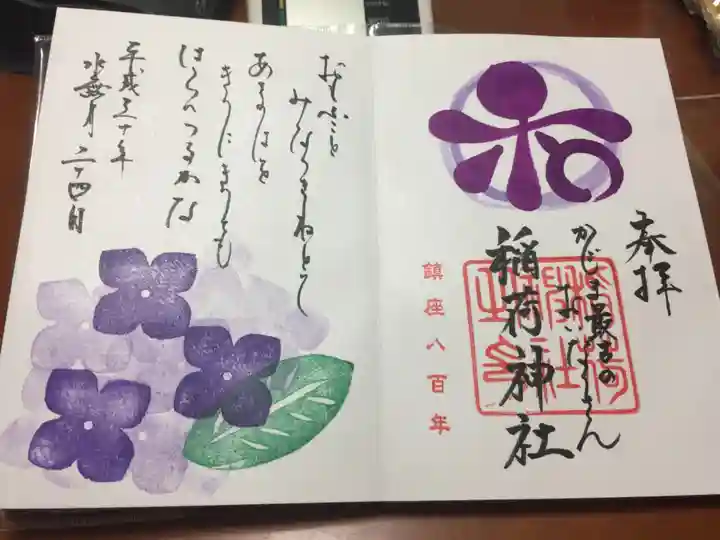 奉拝
かじま
の
おいなりさん
稲荷
神社
之印
稲荷神社
鎮座八百年
おもふこと
みなつきねとて
あさのはを
きりにきりても
はらへつるかな
平成三十年
水無月二十四日